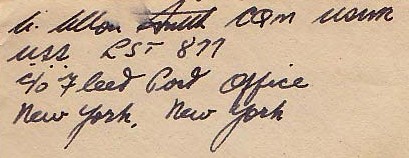 Smith CQM USNR
U.S.S. LST 877
c/o Fleet Post Office
New York, New York